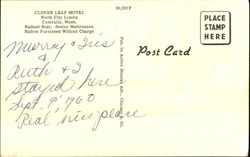 CLOVER LEAF MOTEL
North City Limits
Centralia, Wash.
Radiant Heat, Sealey Mattresses.
Radios Furnished Without Charge
38,501F
PLACE
STAMP
HERE
Post Card
Murray & Iris
&
Ruth & I
stayed here
Sept. 9, 1960
Real nice place
Pub. by Action Display Adv., Chicago, Ill.